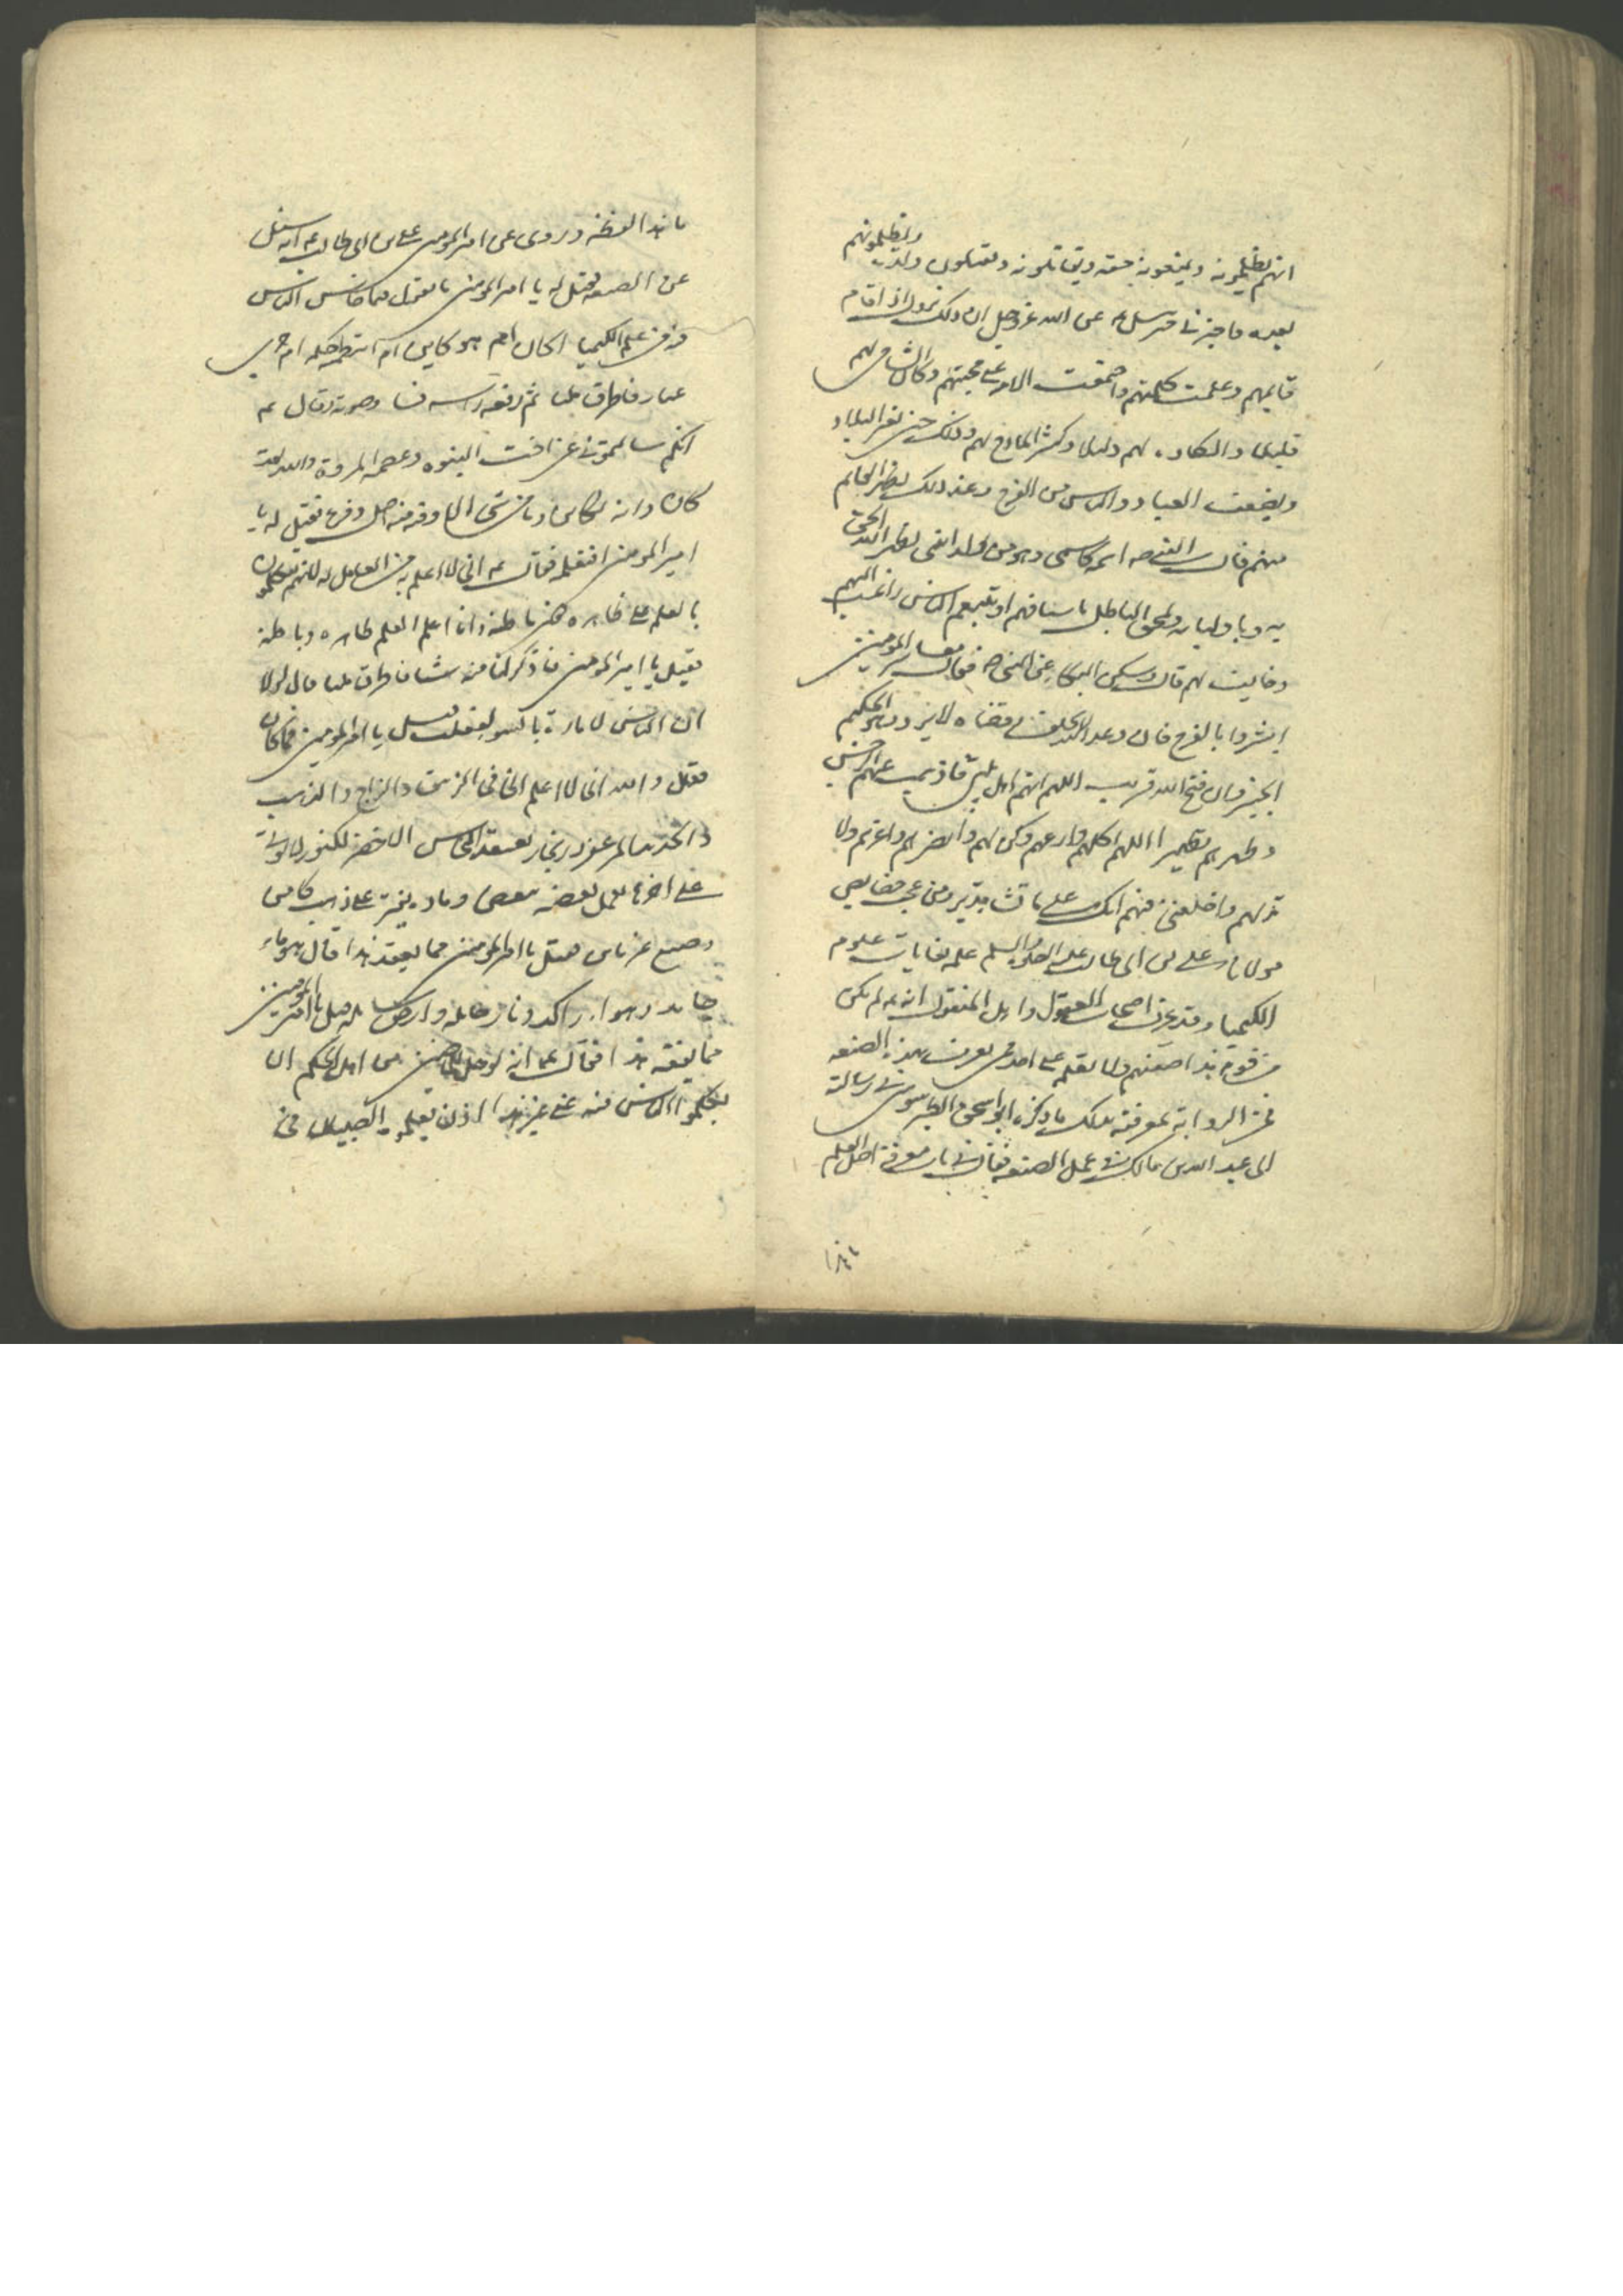 انهم يظلمونه ويمنعونه حقه ويقاتلونه ويقتلون ولده ويظلمونهم
بعده فاخبرني جبرئيل ع عن الله عز وجل ان ذلك يزول اذا قام
قايمهم وعلت كلمتهم واجتمعت الامة على محبتهم وكان الشاني لهم
قليلا والكاره لهم ذليلا وكثر المادح لهم وذلك حين تغير البلاد
وبضعف العباد والياس من الفرج وعند ذلك يظهر القايم
منهم قال النبي ص اسمه كاسمي وهو من ولد ابنتي يظهر الله الحق
به وباوليايه ويخمد الباطل باسيافهم ويتبعهم الناس راغب اليهم
وخايف لهم قال وسكن البكاء عن النبي ص فقال معاشر المومنين
ابشروا بالفرج فان وعد الله لا يخلف وقضاه لا يرد وهو الحكيم
الخبير فان فتح الله قريب اللهم انهم اهل بيتي فاذهب عنهم الرجس
وطهرهم تطهيرا اللهم اكلاهم وارعهم وكن لهم وانصرهم واعزهم ولا
تذلهم واخلفني فيهم انك على ما تشاء قدير ومن عجيب خصايص
مولانا علي بن ابي طالب عليه الصلوة والسلم علمه بغايات علوم
الكيميا وقد عرف اصحاب العقول واهل المنقول انه ع لم يكن
من قوم هذا صنعتهم ولا تعلم على احد من يعرف بهذه الصنعه
فمن الرواية لمعرفته بذلك ما ذكره ابو اسحق الطرسوسي في رسالته
الى عبد الله بن مالك في عمل الصنعه فقال في باب معرفة اصل العلم
ما هذا لفظه وروى عن امير المومنين علي بن ابي طالب ع انه سئل
عن الصنعه فقيل له يا امير المومنين ما تقول فيما خاض الناس
فيه من علم الكيميا اكان ام هو كاين ام
فاطرق مليا ثم رفع راسه وقال ع
انكم سالتموني عن اخت النبوه وعصمة المروة والله لقد
كان وانه لكاين وما من شي الا وفيه منه اصل وفرع فقيل له يا
امير المومنين افتعلمه فقال ع اني لاعلم به من العالمين له لانهم يتكلمون
بالعلم على ظاهره دون باطنه وانا اعلم العلم ظاهره وباطنه
فقيل يا امير المومنين فاذكر لنا منه شيئا فاطرق مليا قال لولا
ان النفس لامارة بالسوء لفعلت فقيل يا امير المومنين فما كان
فقال والله اني لاعلم ان في الزيبق والزاج والذهب
والحديد المزعفر وزنجار النحاس الاخضر لكنوز لا يوتى
على اخرها يعمل بعضه ببعض
فقيل يا امير المومنين فيما يعقد هذا قال هو ماء
جامد وهواء راكد ونار حايلة وارض سايلة فقيل يا امير المومنين
فما نفقه هذا فقال ع انه لو حل للماضين من اهل الحكم ان
يعلموا الناس منه على غير هذا اذن لعلمه الصبيان في